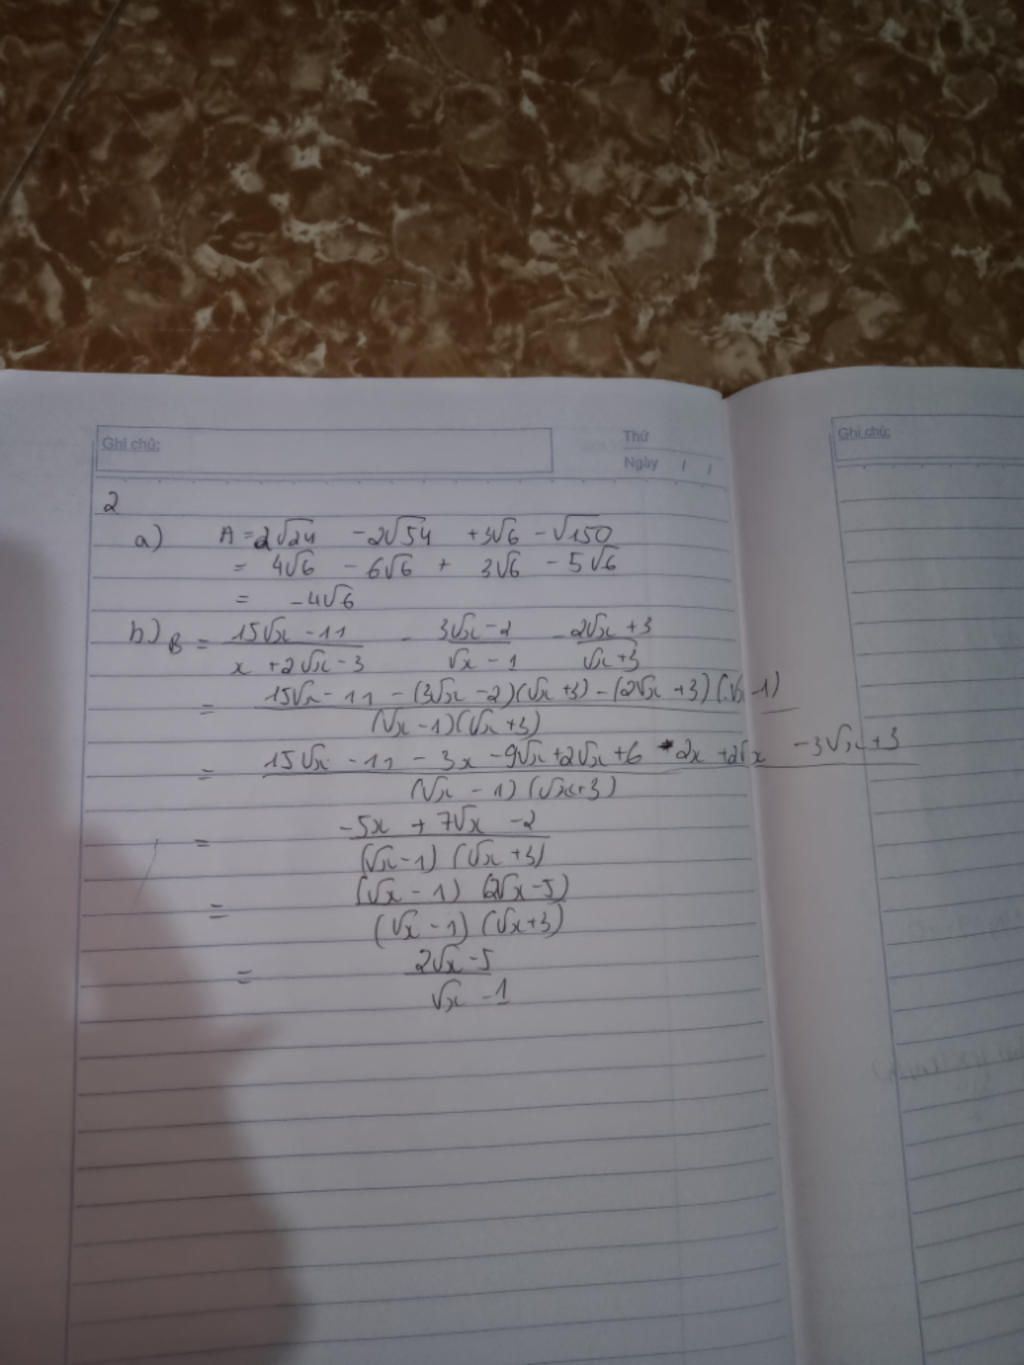 Ghi chú:
Thứ
Ngày / /
Ghi chú:
2
a) A = 2√24 - 2√54 + 3√6 - √150
= 4√6 - 6√6 + 3√6 - 5√6
= -4√6
b) B = (15√x - 11)/(x + 2√x - 3) - (3√x - 2)/(√x - 1) - (2√x + 3)/(√x + 3)
= (15√x - 11 - (3√x - 2)(√x + 3) - (2√x + 3)(√x - 1))/((√x - 1)(√x + 3))
= (15√x - 11 - 3x - 9√x + 2√x + 6 - 2x + 2√x - 3√x + 3)/((√x - 1)(√x + 3))
= (-5x + 7√x - 2)/((√x - 1)(√x + 3))
= ((√x - 1)(2√x - 5))/((√x - 1)(√x + 3))
= (2√x - 5)/(√x - 1)